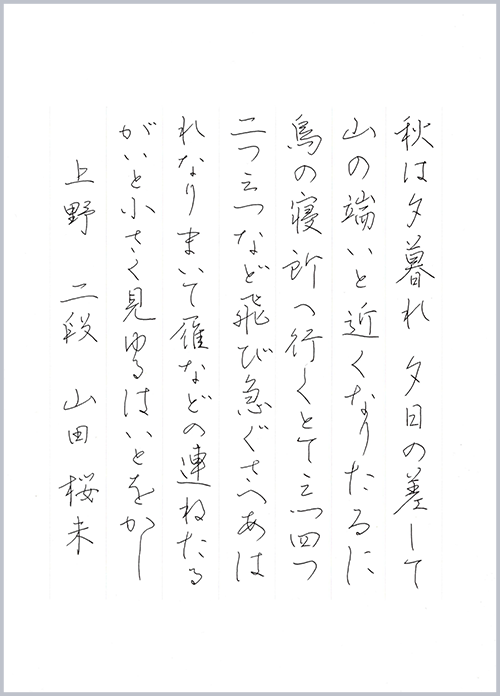 秋は夕暮れ 夕日の差して
山の端いと近くなりたるに
烏の寝所へ行くとて三つ四つ
二つ三つなど飛び急ぐさへあは
れなりまいて雁などの連ねたる
がいと小さく見ゆるはいとをかし
上野 二段 山田桜未